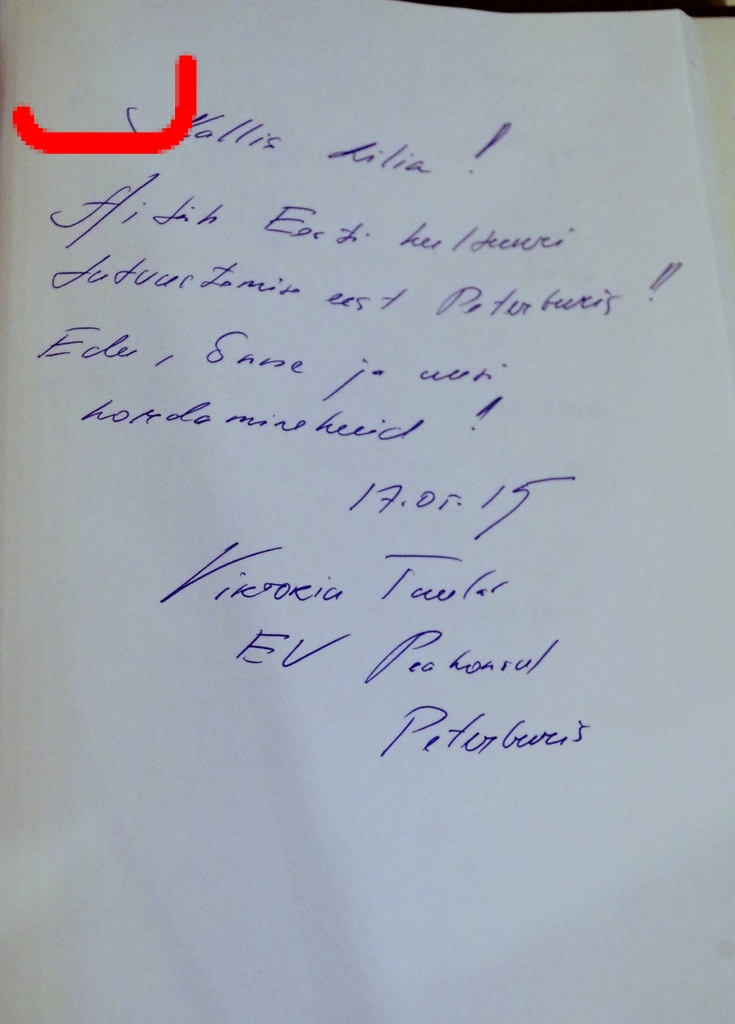 Kallis Lilia!
Aitäh Eesti kultuuri
tutvustamise eest Peterburis!!
Edu, õnne ja uusi
kordaminekuid!
17.05.15
Viktoria
EV Peakonsul
Peterburis